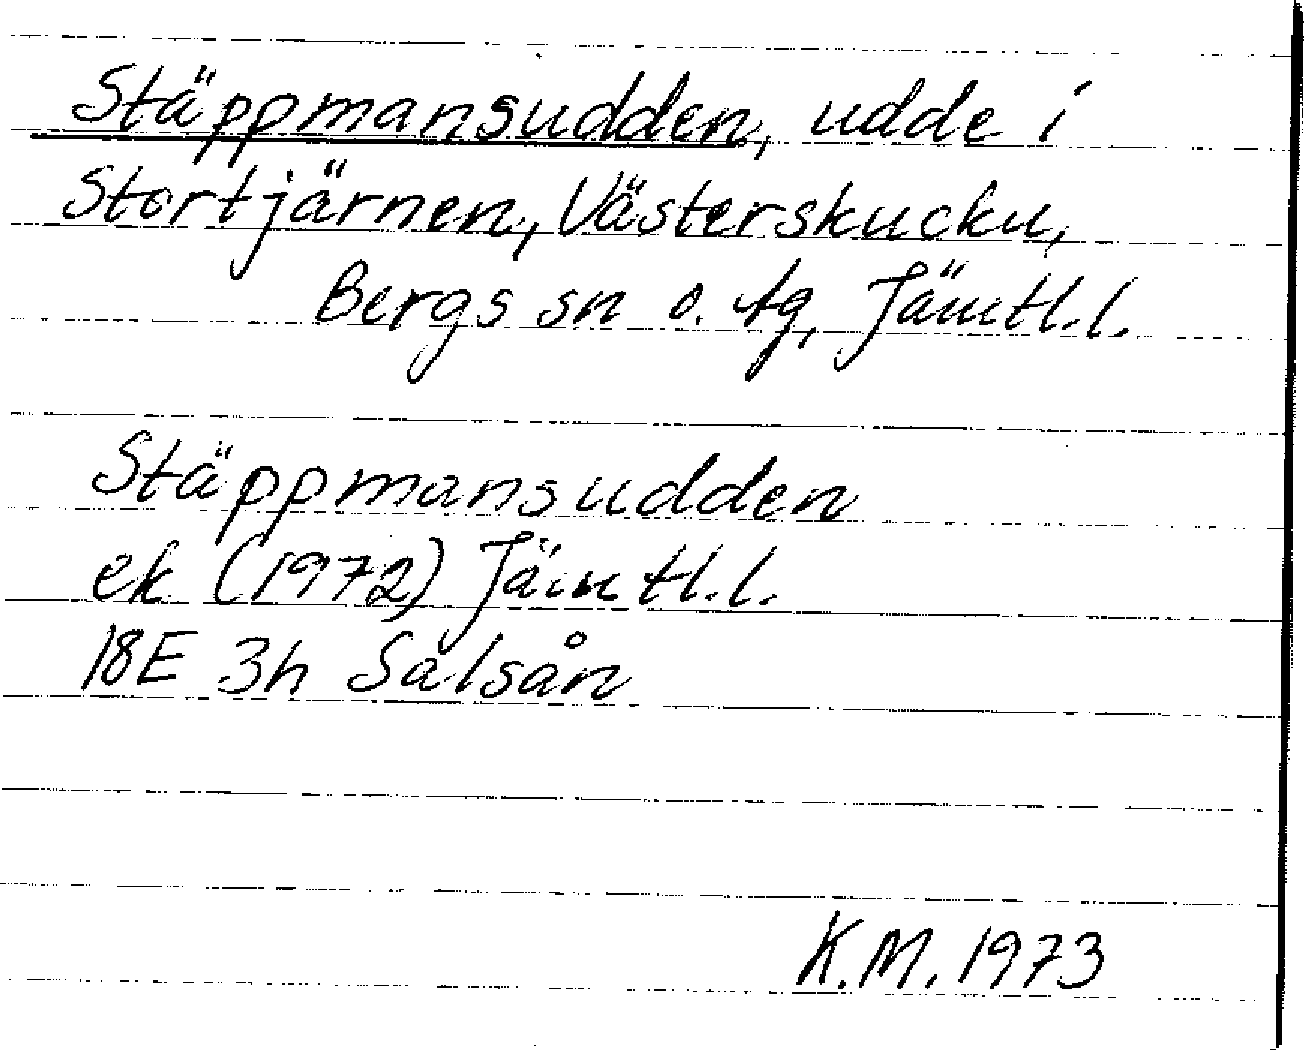 Stäppmansudden, udde i
Stortjärnen, Västerskucku,
Bergs sn o. tg, Jämtl.l.
Stäppmansudden
ek (1972) Jämtl.l.
18E 3h Sålsån
K.M. 1973